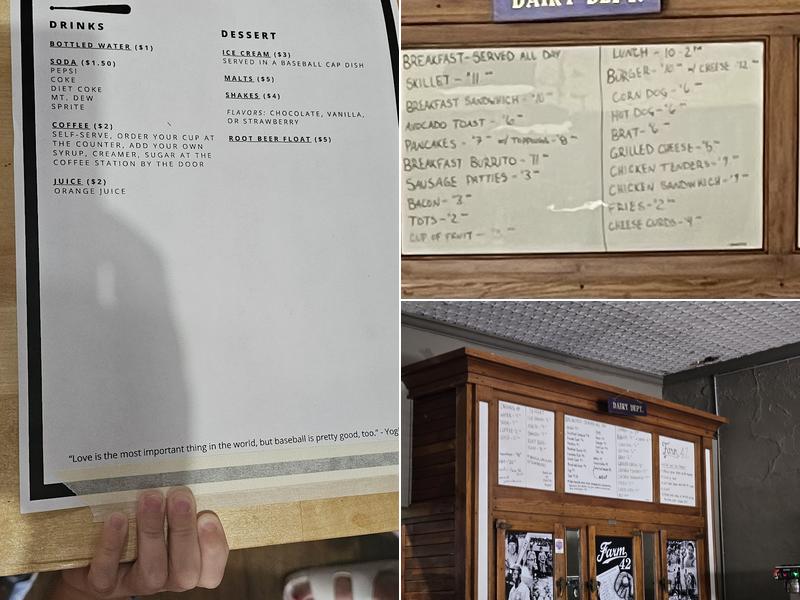 DRINKS
BOTTLED WATER ($1)
SODA ($1.50)
PEPSI
COKE
DIET COKE
MT. DEW
SPRITE
COFFEE ($2)
SELF-SERVE, ORDER YOUR CUP AT
THE COUNTER, ADD YOUR OWN
SYRUP, CREAMER, SUGAR AT THE
COFFEE STATION BY THE DOOR
JUICE ($2)
ORANGE JUICE
DESSERT
ICE CREAM ($3)
SERVED IN A BASEBALL CAP DISH
MALTS ($5)
SHAKES ($4)
FLAVORS: CHOCOLATE, VANILLA,
OR STRAWBERRY
ROOT BEER FLOAT ($5)
"Love is the most important thing in the world, but baseball is pretty good, too." - Yog
DAIRY DEPT.
BREAKFAST-SERVED ALL DAY
SKILLET - $11
BREAKFAST SANDWICH - $10
AVOCADO TOAST - $6
PANCAKES - $7 w/ TOPPINGS - $8
BREAKFAST BURRITO - 11
SAUSAGE PATTIES - $3
BACON - $3
TOTS - $2
CUP OF FRUIT -
LUNCH - 10-2PM
BURGER - $10 w/ CHEESE $12
CORN DOG - $6
HOT DOG - $6
BRAT - $6
GRILLED CHEESE - $5
CHICKEN TENDERS - $9
CHICKEN SANDWHICH - $9
FRIES - $2
CHEESE CURDS - $4
DAIRY DEPT.
Farm 42
Farm
42